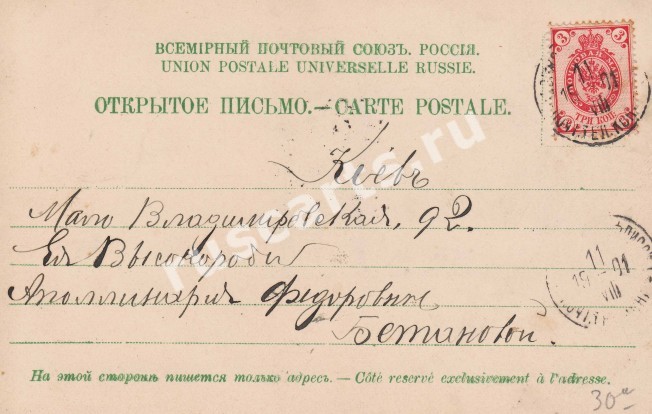 ВСЕМІРНЫЙ ПОЧТОВЫЙ СОЮЗЪ. РОССІЯ.
UNION POSTALE UNIVERSELLE RUSSIE.
ОТКРЫТОЕ ПИСЬМО.—CARTE POSTALE.
3 3
ТРИ КОП.
11 01
VIII
ПОЧ.ТЕЛ.КОН
Кіевъ
Мало Владимірская, 92.
Ея Высокородію
Аполлинаріи Федоровнѣ
Бетановой.
11
19 01
VIII
На этой сторонѣ пишется только адресъ.—Côté reservé exclusivement à l'adresse.
30
ruscarts.ru